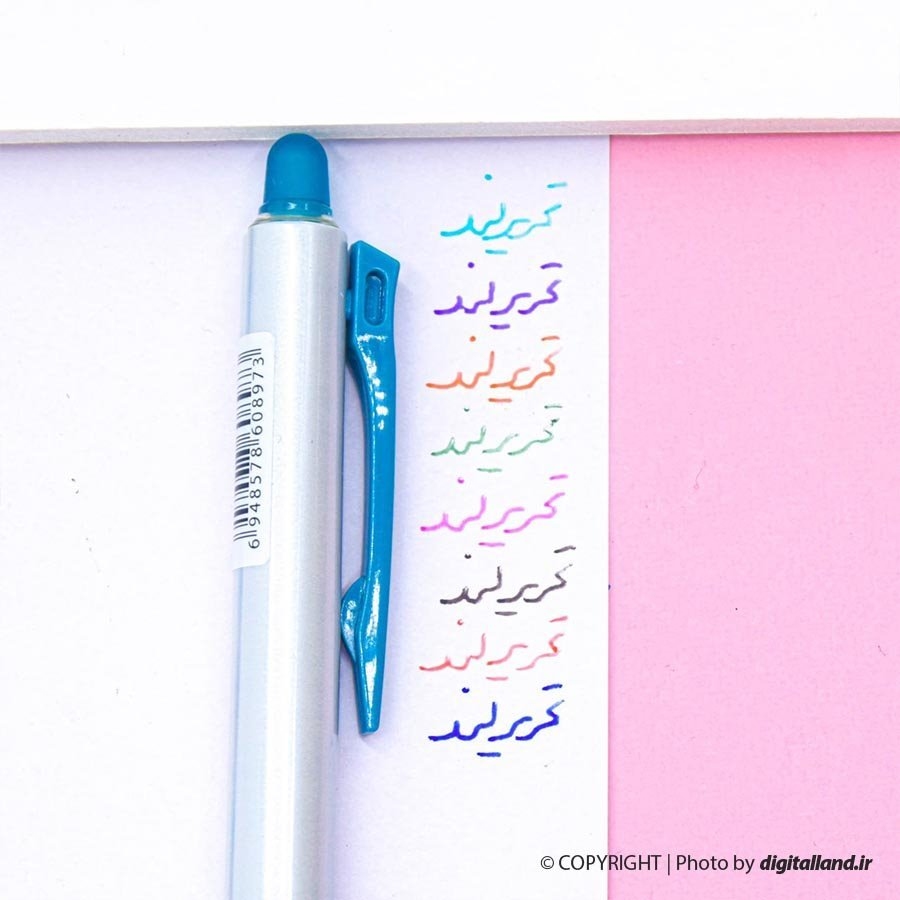 تحریرلند
تحریرلند
تحریرلند
تحریرلند
تحریرلند
تحریرلند
تحریرلند
تحریرلند
6 948578 608973
© COPYRIGHT | Photo by digitalland.ir